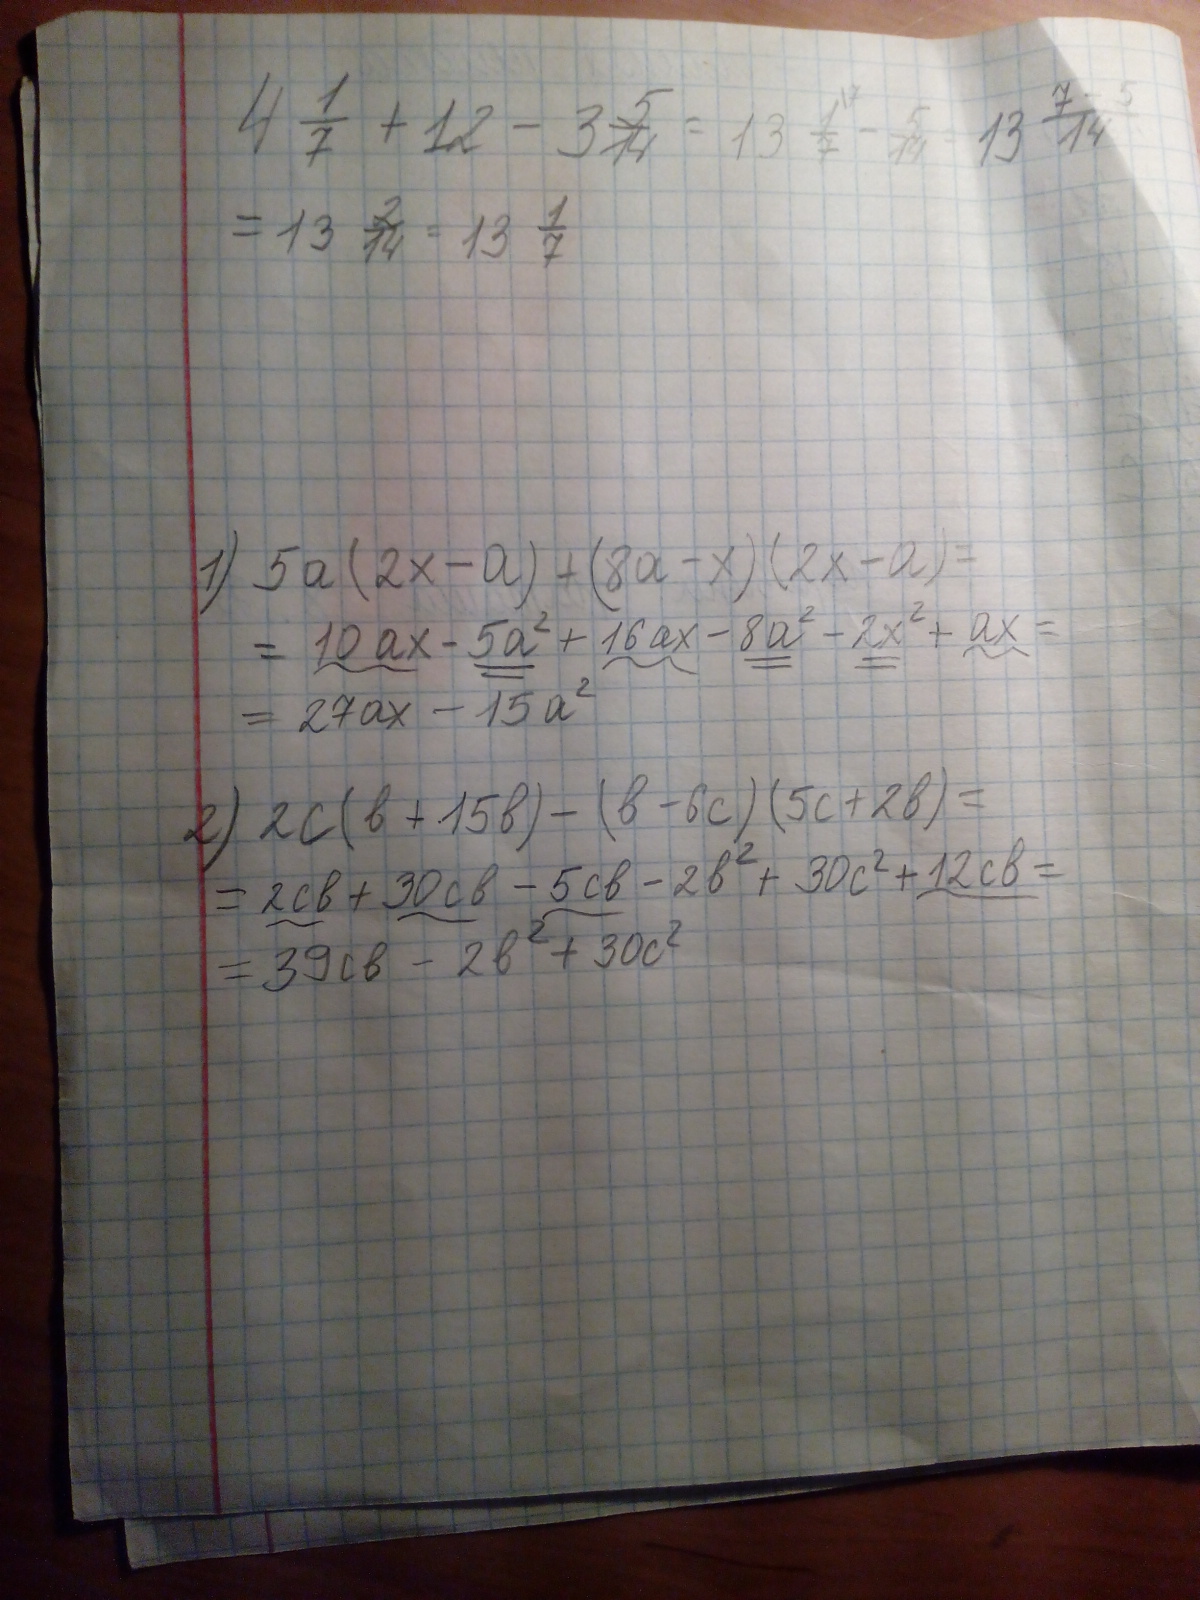 4 1/7 + 12 - 3 5/14 = 13 1/7 - 5/14 = 13 (7-5)/14
= 13 2/14 = 13 1/7
1) 5a(2x-a)+(8a-x)(2x-a)=
= 10ax - 5a² + 16ax - 8a² - 2x² + ax =
= 27ax - 15a²
2) 2c(в+15в)-(в-6c)(5c+2в)=
= 2cв + 30cв - 5cв - 2в² + 30c² + 12cв =
= 39cв - 2в² + 30c²